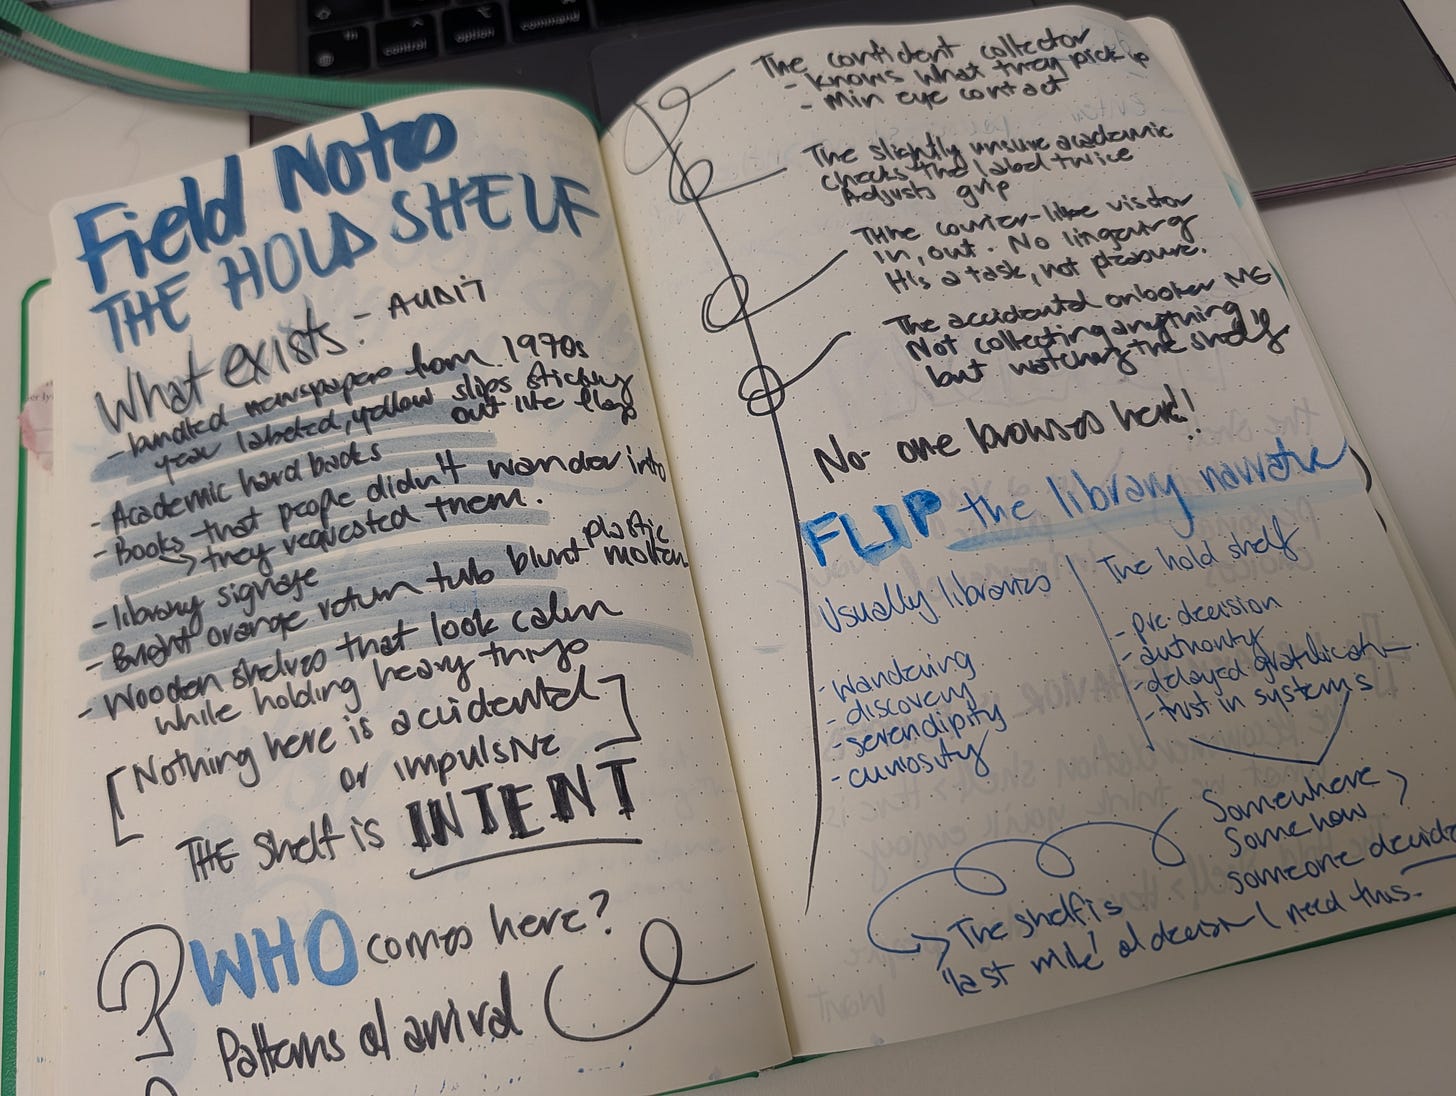 control
option
command
Field Notes
THE HOLD SHELF
What exists. - AUDIT
- bundled newspapers from 1970s
year labeled, yellow slips sticking
out like flags
- Academic hard backs
- Books that people didn't wander into
→ they requested them.
- library signage
- Bright orange return tub blunt plastic
- Wooden shelves that look calm
while holding heavy things
[Nothing here is accidental
or impulsive]
THE shelf is INTENT
? WHO comes here?
Patterns of arrival
The confident collector
- knows what they pick up
- min eye contact
The slightly unsure academic
checks the label twice
Adjusts grip
THhe courier-like visitor
In, out. No lingering
It's a task, not pleasure.
The accidental onlooker ME
Not collecting anything
but watching the shelf
No one browses here!!
FLIP the library narrative
Usually libraries
- wandering
- discovery
- serendipity
- curiosity
The hold shelf
- pre-decision
- authority
- delayed gratification
- trust in systems
Somewhere
Somehow
someone decided
I need this.
→ The shelf is
'last mile' of decision